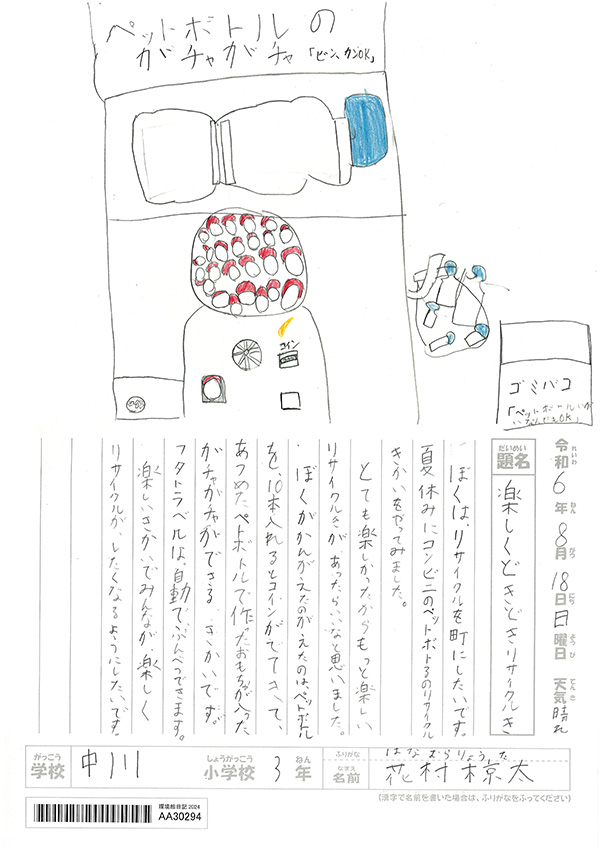 ペットボトルの
ガチャガチャ「ビン、カンOK」
コイン
ゴミバコ
「ペットボトルいがいなでもOK」
令和6年8月18日日曜日 天気 晴れ
れいわ ねん がつ にち ようび てんき
だいめい
題名 楽しくどきどきリサイクルき
ぼくは、リサイクルを町にしたいです。
夏休みにコンビニのペットボトるのリサイクル
きかいをやってみました。
とても楽しかったからもっと楽しい
リサイクルきが、あったら、いいなと思いました。
ぼくがかんがえたのがえたのは、ペットボトル
を、10本入れるとコインがでてきて、
あつめたペトボトルで作ったおもちゃが入った
ガチャガチャができる、きかいです。
フタトラベルは、自動で、ぶんべつできます。
楽しいきかいでみんなが、楽しく
リサイクルが、したくなるようにしたいです。
がっこう しょうがっこう ねん ふりがな はなむらりょうた
学校 中川 小学校 3年 なまえ 名前 花村椋太
(漢字で名前を書いた場合は、ふりがなをふってください)
環境絵日記 2024
AA30294